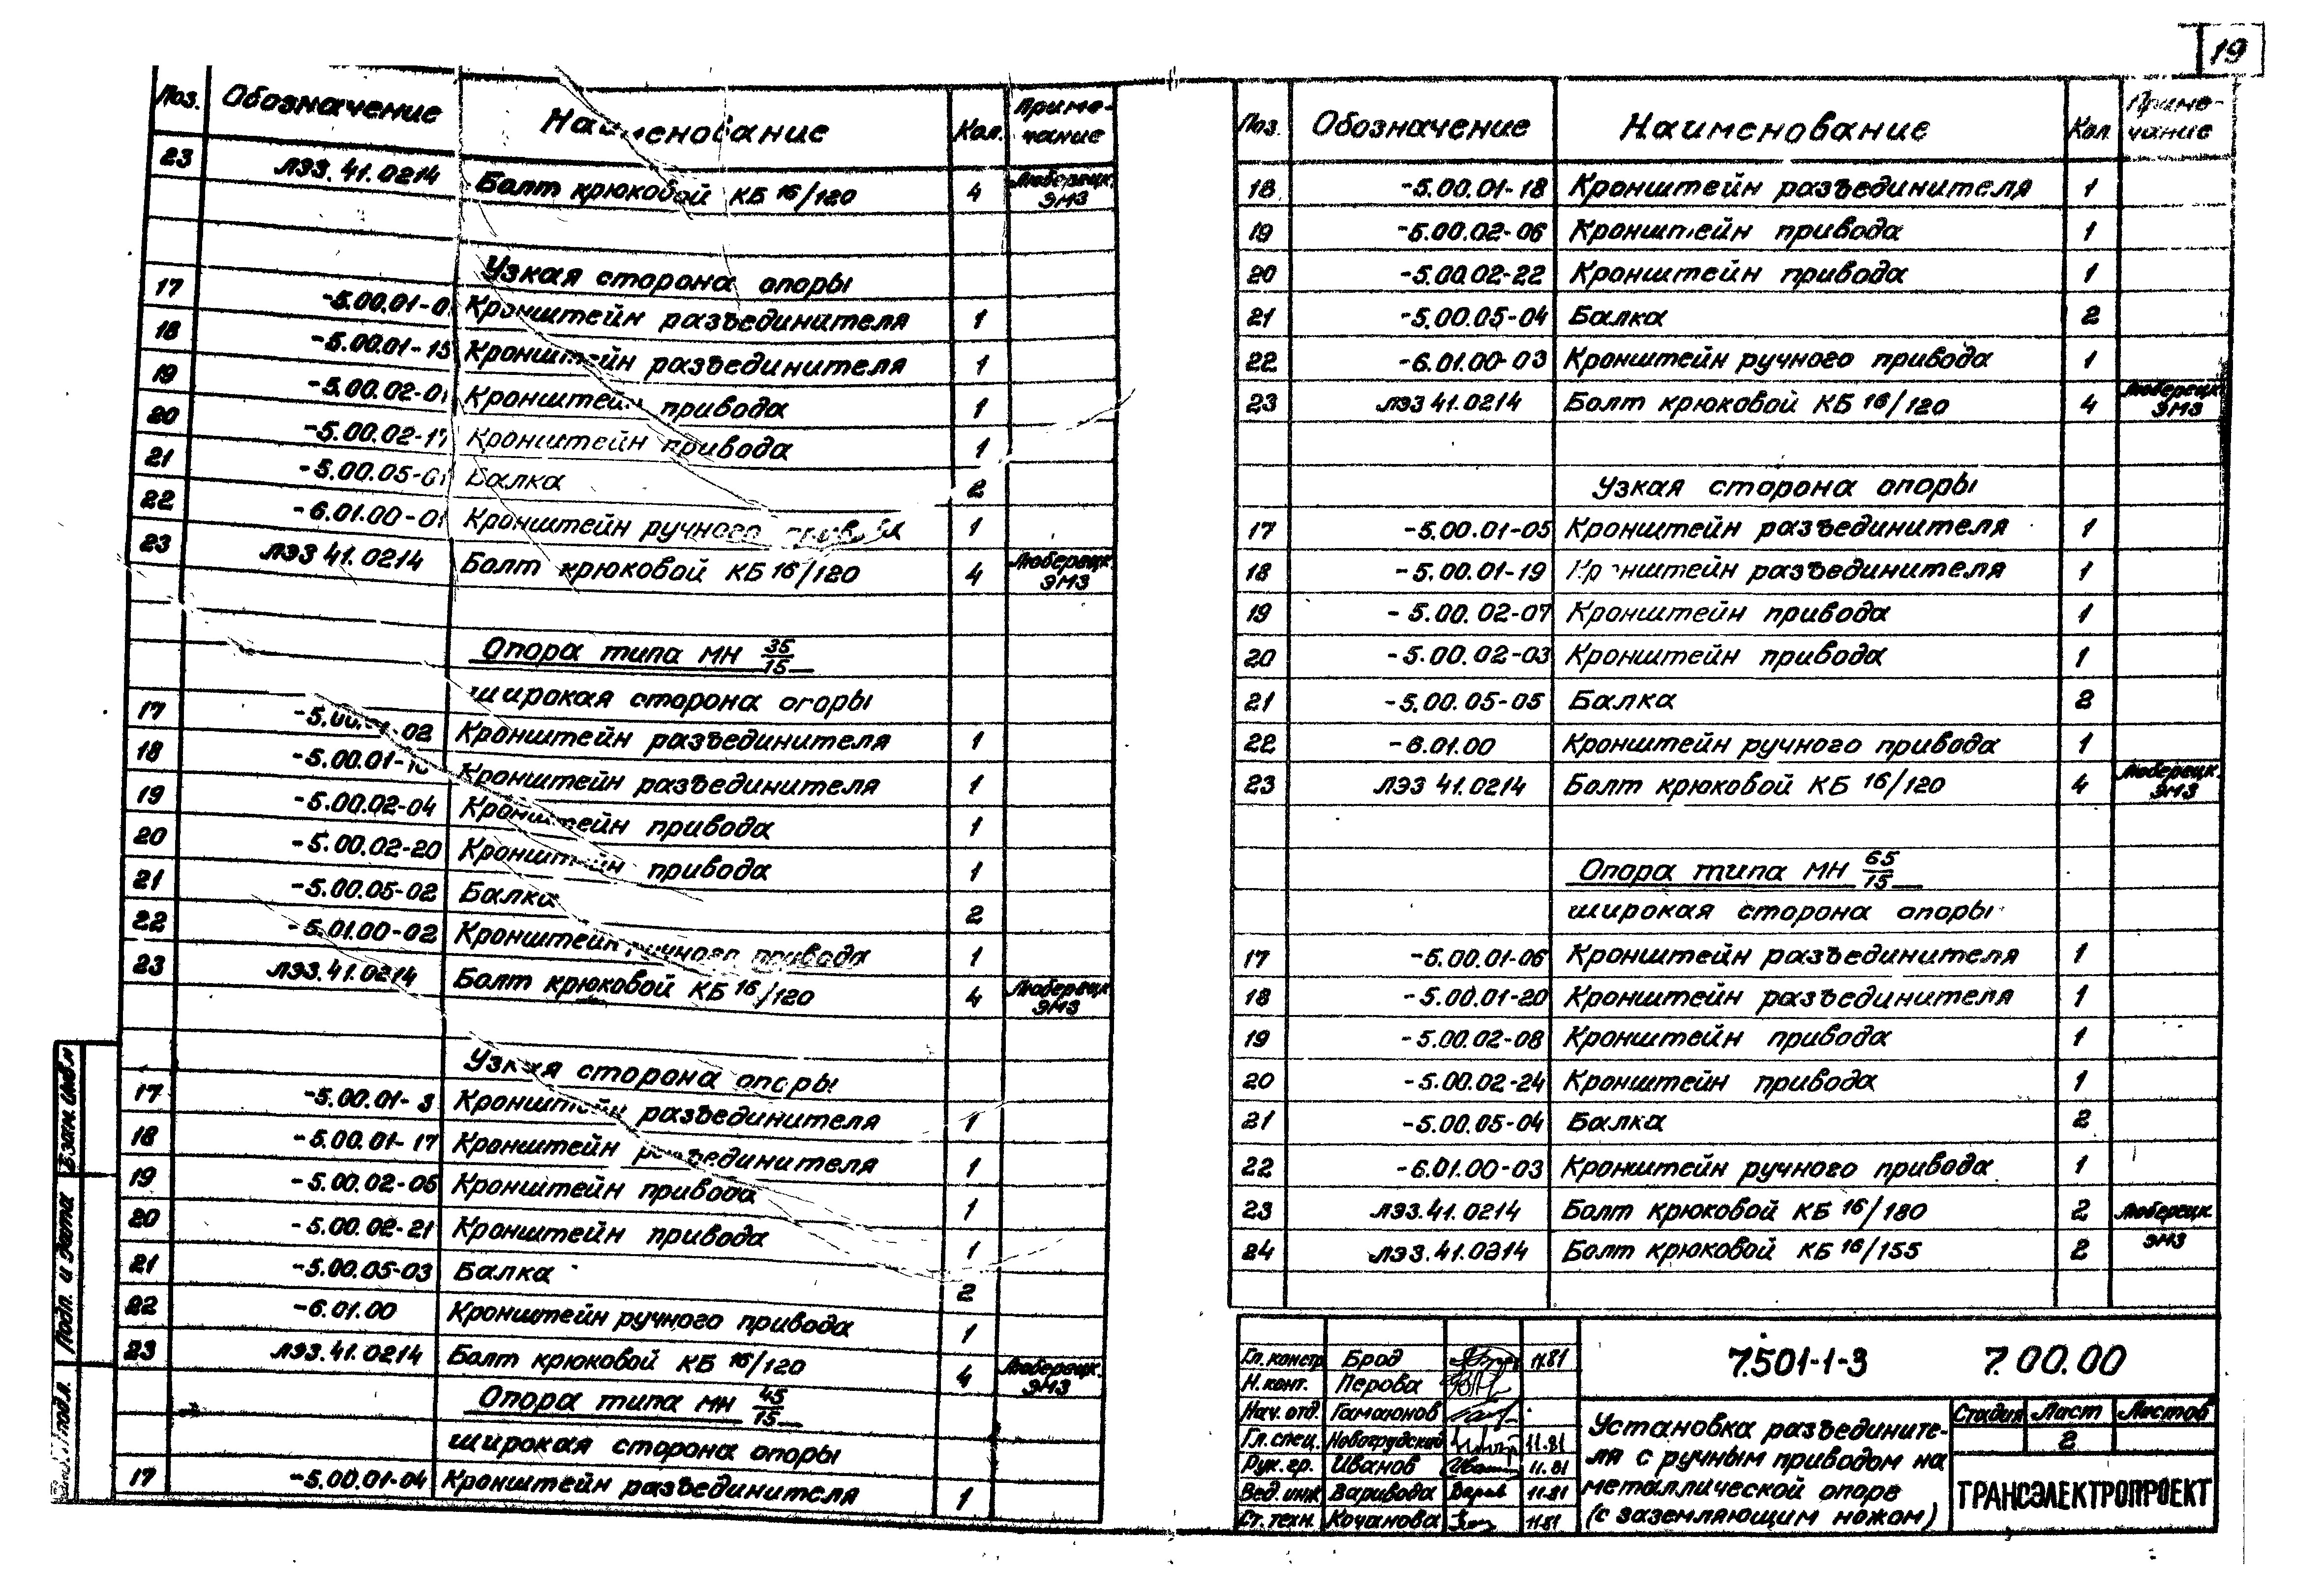 19
Поз. Обозначение Наименование Кол. Приме-
чание
23 ЛЭЗ.41.0214 Болт крюковой КБ 16/120 4 Люберецк.
ЭМЗ
Узкая сторона опоры
17 -5.00.01-0 Кронштейн разъединителя 1
18 -5.00.01-15 Кронштейн разъединителя 1
19 -5.00.02-01 Кронштейн привода 1
20 -5.00.02-17 Кронштейн привода 1
21 -5.00.05-01 Балка 2
22 -6.01.00-01 Кронштейн ручного привода 1
23 ЛЭЗ 41.0214 Болт крюковой КБ 16/120 4 Люберецк.
ЭМЗ
Опора типа МН 35/15
широкая сторона опоры
17 -5.00.01-02 Кронштейн разъединителя 1
18 -5.00.01-1 Кронштейн разъединителя 1
19 -5.00.02-04 Кронштейн привода 1
20 -5.00.02-20 Кронштейн привода 1
21 -5.00.05-02 Балка 2
22 -5.01.00-02 Кронштейн ручного привода 1
23 ЛЭЗ.41.0214 Болт крюковой КБ 16/120 4 Люберецк.
ЭМЗ
Узкая сторона опоры
17 -5.00.01-3 Кронштейн разъединителя 1
18 -5.00.01-17 Кронштейн разъединителя 1
19 -5.00.02-05 Кронштейн привода 1
20 -5.00.02-21 Кронштейн привода 1
21 -5.00.05-03 Балка 2
22 -6.01.00 Кронштейн ручного привода 1
23 ЛЭЗ.41.0214 Болт крюковой КБ 16/120 4 Люберецк.
ЭМЗ
Опора типа МН 45/15
широкая сторона опоры
17 -5.00.01-04 Кронштейн разъединителя 1
Взам. инв.н
Подп. и дата
подл.
Поз. Обозначение Наименование Кол. Приме-
чание
18 -5.00.01-18 Кронштейн разъединителя 1
19 -5.00.02-06 Кронштейн привода 1
20 -5.00.02-22 Кронштейн привода 1
21 -5.00.05-04 Балка 2
22 -6.01.00-03 Кронштейн ручного привода 1
23 ЛЭЗ 41.0214 Болт крюковой КБ 16/120 4 Люберецк.
ЭМЗ
Узкая сторона опоры
17 -5.00.01-05 Кронштейн разъединителя 1
18 -5.00.01-19 Кронштейн разъединителя 1
19 -5.00.02-07 Кронштейн привода 1
20 -5.00.02-03 Кронштейн привода 1
21 -5.00.05-05 Балка 2
22 -6.01.00 Кронштейн ручного привода 1
23 ЛЭЗ 41.0214 Болт крюковой КБ 16/120 4 Люберецк.
ЭМЗ
Опора типа МН 65/15
широкая сторона опоры
17 -5.00.01-06 Кронштейн разъединителя 1
18 -5.00.01-20 Кронштейн разъединителя 1
19 -5.00.02-08 Кронштейн привода 1
20 -5.00.02-24 Кронштейн привода 1
21 -5.00.05-04 Балка 2
22 -6.01.00-03 Кронштейн ручного привода 1
23 ЛЭЗ.41.0214 Болт крюковой КБ 16/180 2 Люберецк.
24 ЛЭЗ.41.0214 Болт крюковой КБ 16/155 2 ЭМЗ
Гл. констр Брод 11.81
Н. конт. Перова
Нач. отд. Гамаюнов
Гл. спец. Новогрудский 11.81
Рук. гр. Иванов 11.81
Вед. инж Варивода 11.81
Ст. техн. Кочанова 11.81
7.501-1-3 7.00.00
Установка разъедините-
ля с ручным приводом на
металлической опоре
(с заземляющим ножом)
Стадия Лист Листов
2
ТРАНСЭЛЕКТРОПРОЕКТ